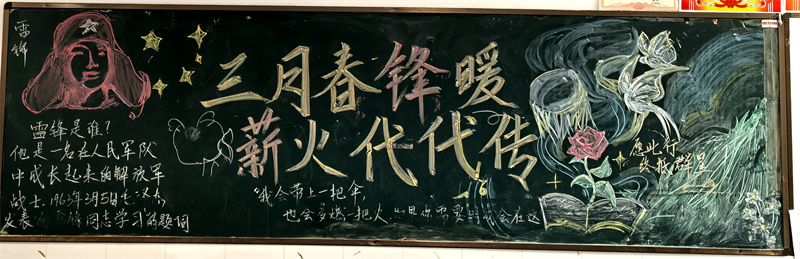 雷锋
三月春锋暖
薪火代代传
雷锋是谁?
他是一名在人民军队
中成长起来的解放军
战士.1963年3月5日毛
发表 同志学习"的题词
"我会带上一把伞,
也会多燃一把火 你需要 会在这
愿此行
终抵群星